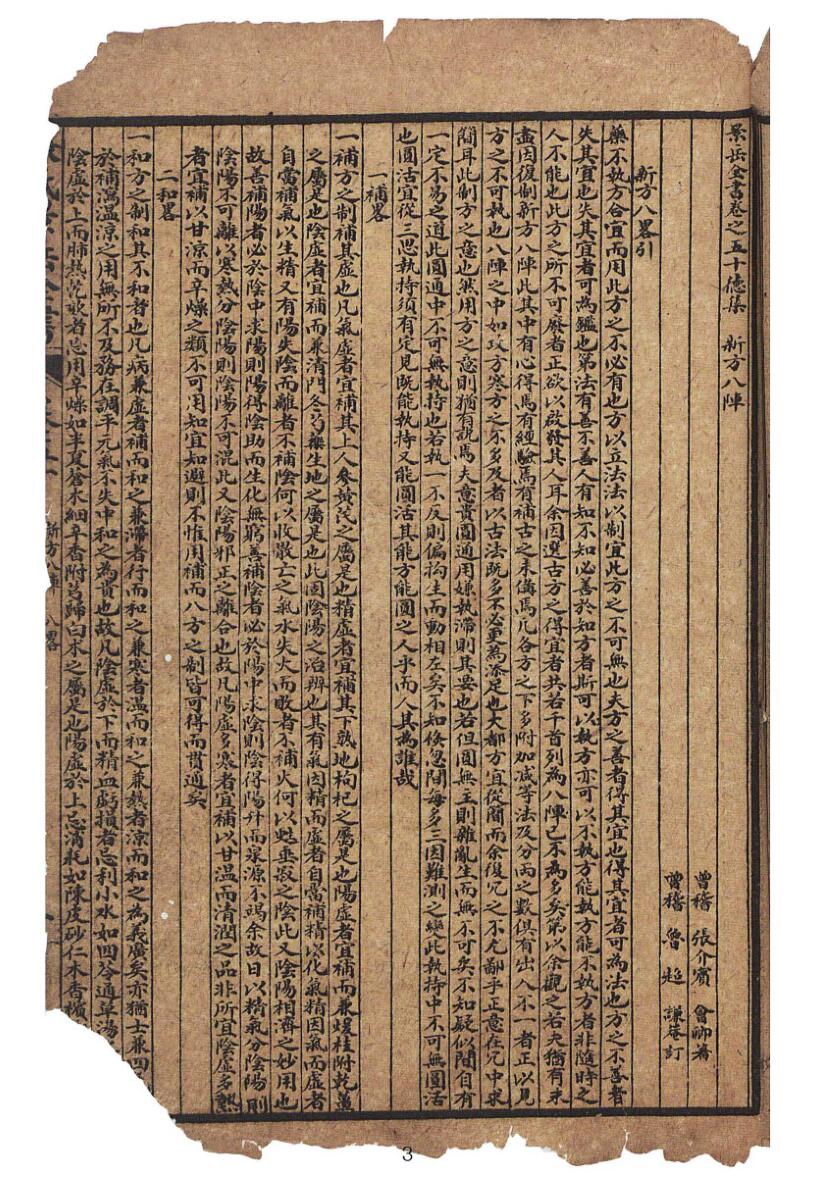 景岳全書卷之五十德集　新方八陣
會稽　張介賓　會卿著
會稽　魯　超　謙菴訂
新方八畧引
藥不執方合宜而用此方之不必有也方以立法法以制宜此方之不可無也夫方之善者得其宜也得其宜者可為法也方之不善者
失其宜也失其宜者可為鑑也第法有善不善人有知不知必善於知方者斯可以執方亦可以不執方能執方能不執方者非隨時之
人不能也此方之所不可廢者正欲以啟發其人耳余因選古方之得宜者共若干首列為八陣已不為多矣第以余觀之若夫猶有未
盡因復制新方八陣此其中有心得焉有經驗焉有補古之未備焉凡各方之下多附加減等法及分兩之數俱有出入不一者正以見
方之不可執也八陣之中如攻方寒方之不多及者以古法既多不必更為添足也大都方宜從簡而余復冗之不尤鄙乎正意在冗中求
簡耳此制方之意也然用方之意則猶有說焉夫意貴圓通用嫌執滯則其要也若但圓無主則雜亂生而無不可矣不知疑似間自有
一定不易之道此圓通中不可無執持也若執一不反則偏拘生而動相左矣不知倏忽間每多三因難測之變此執持中不可無圓活
也圓活宜從三思執持須有定見既能執持又能圓活其能方能圓之人乎而人其為誰哉
一補畧
一補方之制補其虛也凡氣虛者宜補其上人參黃芪之屬是也精虛者宜補其下熟地枸杞之屬是也陽虛者宜補而兼煖桂附乾薑
之屬是也陰虛者宜補而兼清門冬芍藥生地之屬是也此固陰陽之治辨也其有氣因精而虛者自當補精以化氣精因氣而虛者
自當補氣以生精又有陽失陰而離者不補陰何以收散亡之氣水失火而敗者不補火何以甦垂寂之陰此又陰陽相濟之妙用也
故善補陽者必於陰中求陽則陽得陰助而生化無窮善補陰者必於陽中求陰則陰得陽升而泉源不竭余故曰以精氣分陰陽則
陰陽不可離以寒熱分陰陽則陰陽不可混此又陰陽邪正之離合也故凡陽虛多寒者宜補以甘温而清潤之品非所宜陰虛多熱
者宜補以甘涼而辛燥之類不可用知宜知避則不惟用補而八方之制皆可得而貫通矣
二和畧
一和方之制和其不和者也凡病兼虛者補而和之兼滯者行而和之兼寒者温而和之兼熱者涼而和之為義廣矣亦猶士兼四
於補瀉温涼之用無所不及務在調平元氣不失中和之為貴也故凡陰虛於下而精血虧損者忌利小水如四苓通草湯
陰虛於上而肺熱乾咳者忌用辛燥如半夏蒼朮細辛香附芎歸白朮之屬是也陽虛於上忌消耗如陳皮砂仁木香檳
全書
新方八陣　八畧
3